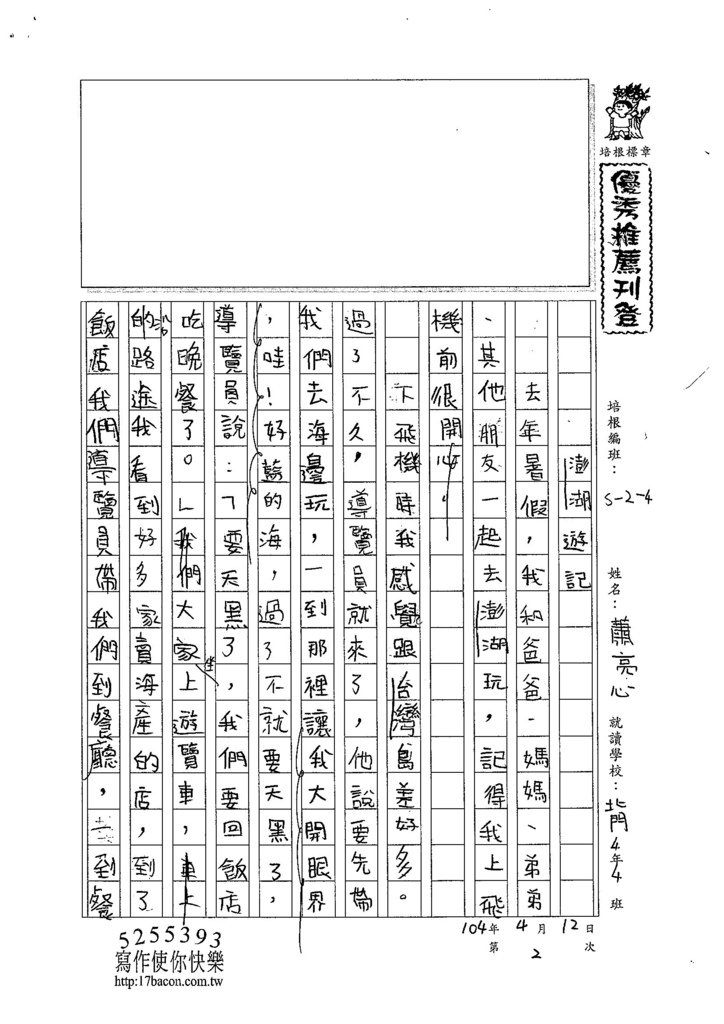 培根標章
優秀推薦刊登
培根編班：S-2-4
姓名：蕭亮心
就讀學校：北門4年4班
104年4月12日
第2次
澎湖遊記
去年暑假，我和爸爸、媽媽、弟弟
、其他朋友一起去澎湖玩，記得我上飛
機前很開心。
下飛機時我感覺跟台灣島差好多。
過了不久，導覽員就來了，他說要先帶
我們去海邊玩，一到那裡讓我大開眼界
，哇！好藍的海，過了不就要天黑了，
導覽員說：「要天黑了，我們要回飯店
吃晚餐了。」我們大家坐上遊覽車，車上
的沿路途我看到好多家賣海產的店，到了
飯店我們導覽員帶我們到餐廳，到餐
5255393
寫作使你快樂
http:17bacon.com.tw